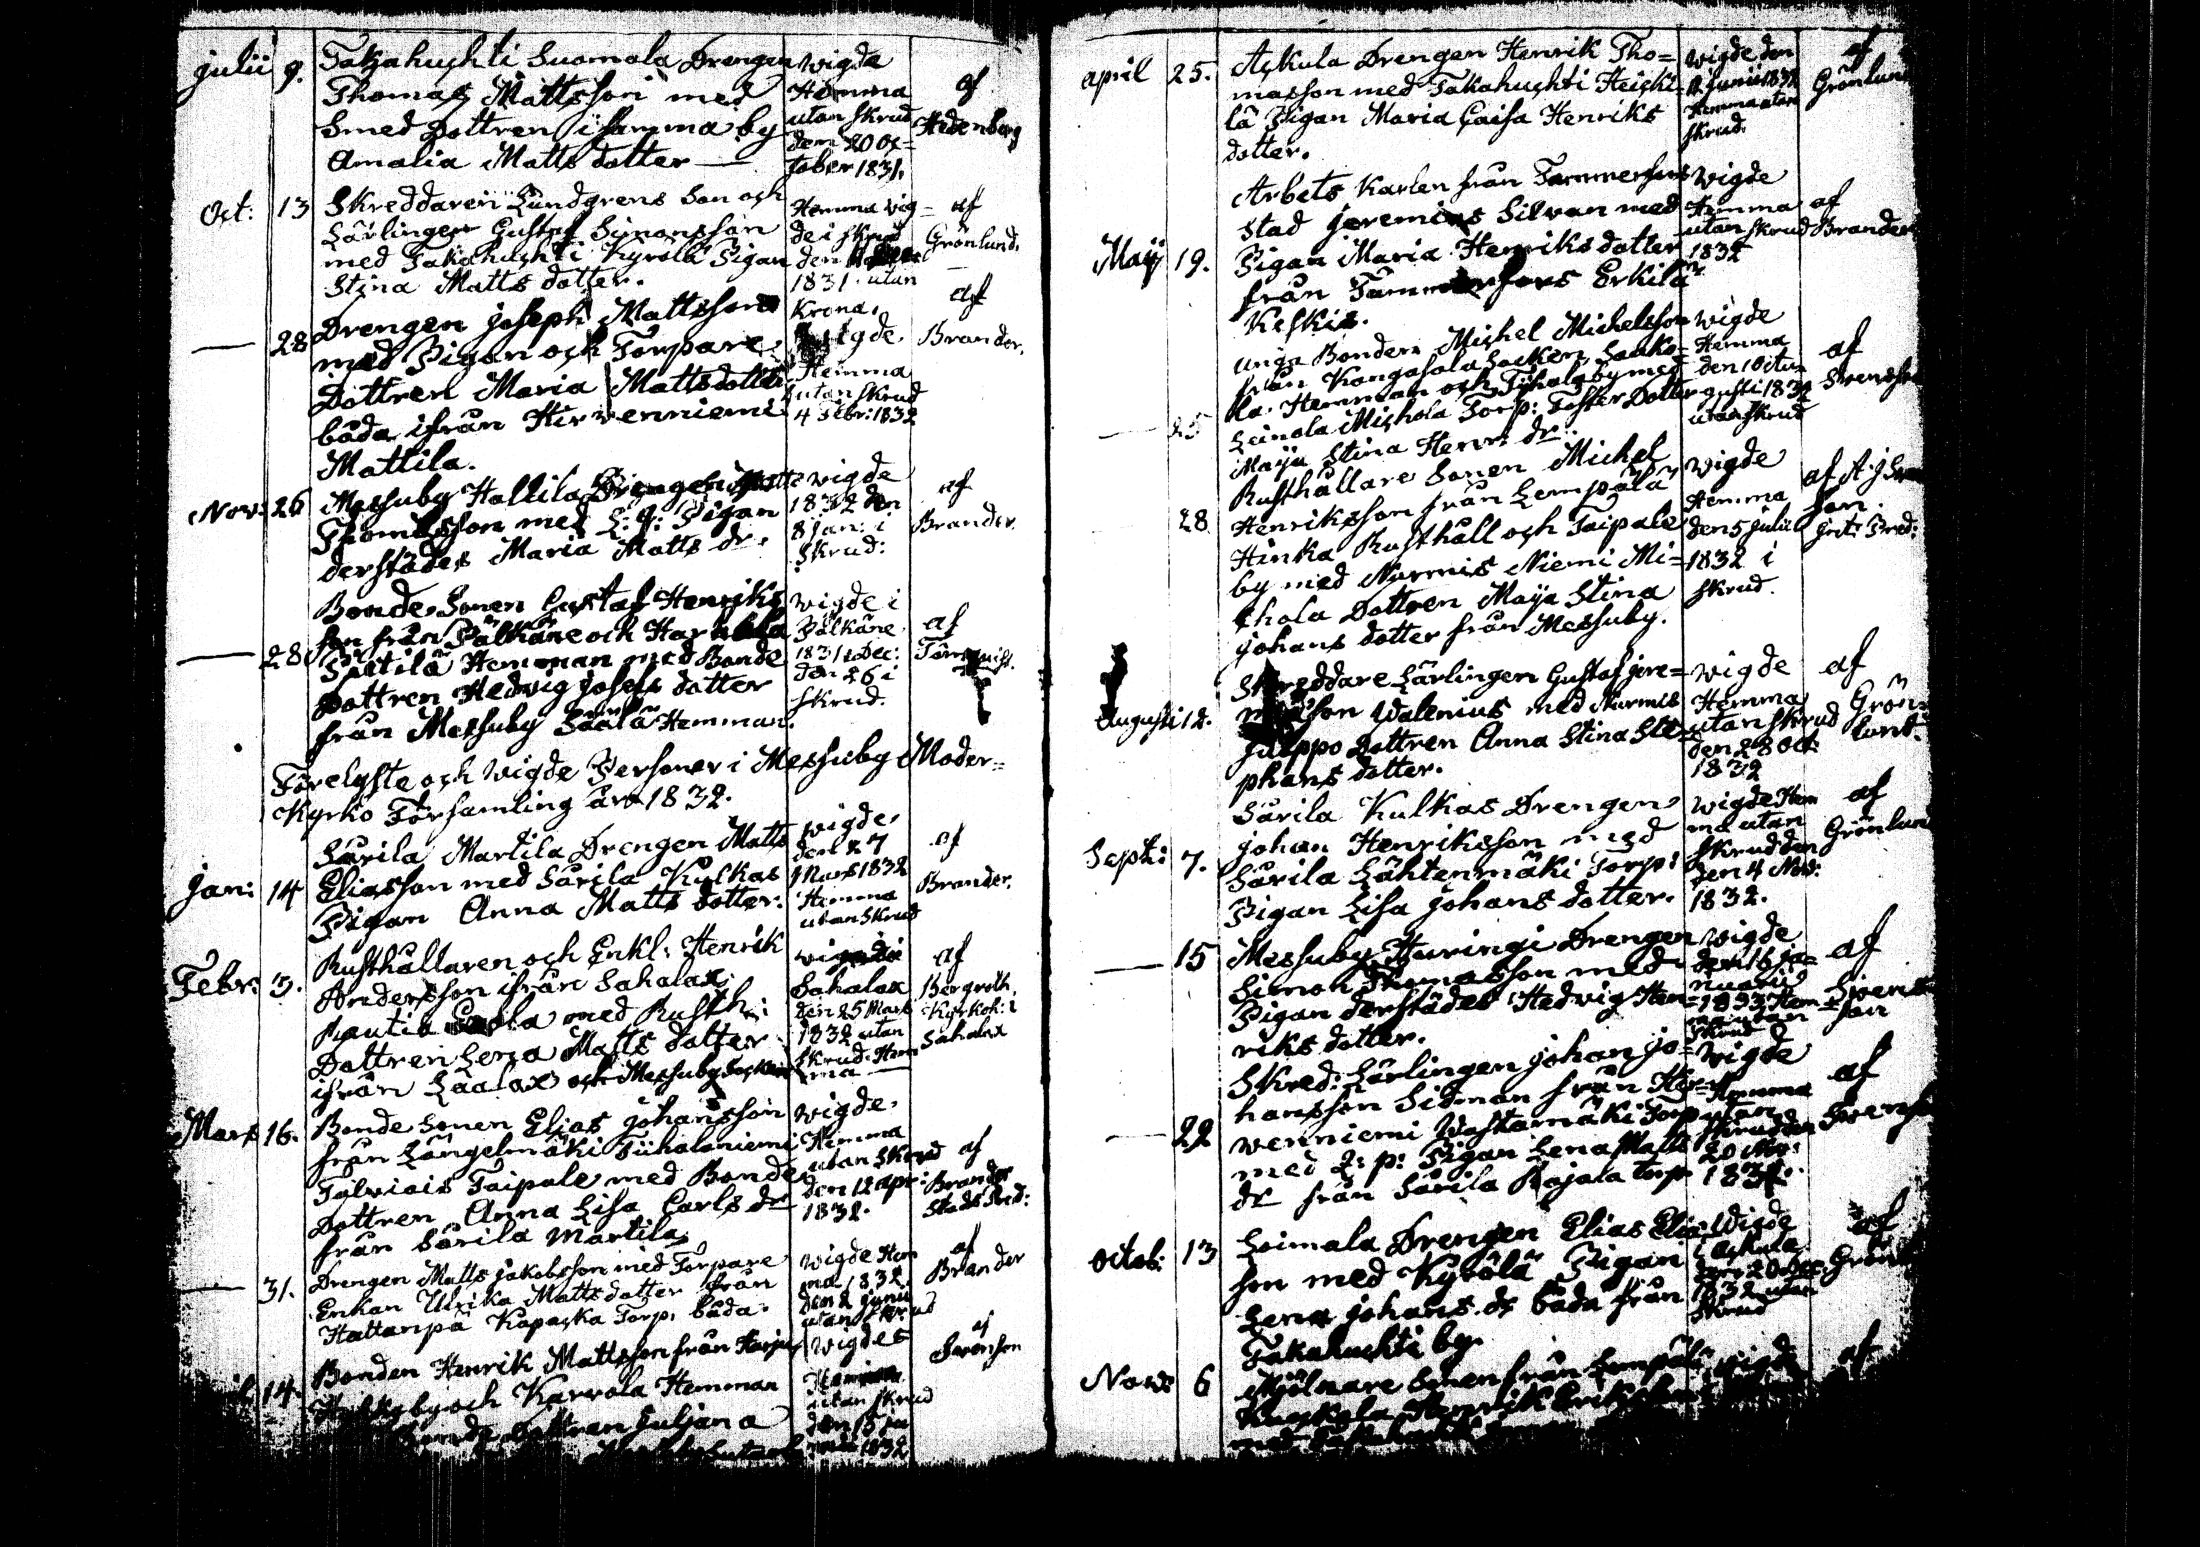 julii 9. Takahuchti Suomala Drengen wigde af
Thomas Mattsson med Hemma Hedenberg
Smed Dottren i samma by utan skrud
Amalia Matts dotter — den 20 Oc=
tober 1831.
Oct: 13 Skreddaren Lundgrens Son och Hemma wig= af
Lärlingen Gustaf Simonsson de i skrud Grönlund.
med Takahuchti Kyrölä Pigan den
Stina Matts dotter. 1831. utan
Krona.
— 28 Drengen Joseph Mattsson wigde af
med Pigan och Torpare Hemma Brander.
Dottren Maria Mattsdotter utan skrud
båda ifrån Hirvenniemi 4 Febr: 1832
Mattila.
Nov: 26 Messuby Hallila Drengen Matts wigde af
Thomasson med L: q: Pigan 1832 den Brander.
derstädes Maria Matts dr. 8 Jan: i
skrud:
Bonde Sonen Gustaf Henriks wigde i af
— 28 son från Pälkäne och Pälkäne
Hemman med Bonde 1831 Dec:
Dottren Hedwig Josefs dotter den 26 i
från Messuby Hemman. skrud.
Förelyste och wigde Personer i Messuby Moder=
Kyrko Församling år 1832.
Jan: 14 Särila Martila Drengen Matts wigde af
Eliasson med Särila Kulkas den 27 Brander.
Pigan Anna Matts dotter. Mars 1832
Hemma
utan skrud
Febr: 3. Rusthållaren och Enkl: Henrik wigde i af
Andersson ifrån Sahalax Sahalax Bergroth
Rautia med Rusth: den 25 Mars Kyrkoh: i
Dottren Lena Matts dotter 1832 utan Sahalax
ifrån Laalax och Messuby Socken skrud. Hem
ma —
Mars 16. Bonde Sonen Elias Johansson wigde af
från Längelmäki Tiihalaniemi Hemma Brander
Taipale med Bonde utan skrud Stads Pred:
Dottren Anna Lisa Carls dr den 12 apr:
från Särila Martila 1832.
— 31. Drengen Matts Jakobsson med Torpare wigde Hem af
Enkan Ulrika Matts dotter från ma 1832 Brander
Hattanpä Kapaska Torp: båda. den 2 Junii
utan skrud
14. Bonden Henrik Mattsson från Harju wigdes af
by och Karvola Hemman Hemma Swenson
Dottren Juljana utan skrud
den 15
1832.
april 25. Ackula Drengen Henrik Tho= wigde den af
masson med Takahuchti Heicki= Junii 1832 Grönlund
lä Pigan Maria Caisa Henriks Hemma utan
dotter. skrud.
Arbets Karlen från Tammerfors wigde af
stad Jeremias Silvan med Hemma Brander
Maij 19. Pigan Maria Henriks dotter utan skrud
från Tammerfors Erkilä 1832
Keskis.
unga Bonden Michel Michelsson wigde af
från Kangasala Socken Hemma Swensson
Hemman och by med den 10 Au=
— 25 Leinola Michola Torp: Foster Dotter gusti 1832
Maija Stina Henr: dr. utan skrud
Rusthållare Sonen Michel wigde af A. J. Swen
28 Henriksson från Lempälä Hemma son.
Hinka Rusthåll och Taipale den 5 Julii Pred:
by med Nurmis Niemi Mi= 1832 i
chola Dottren Maija Stina skrud.
Johans dotter från Messuby.
Skreddare Lärlingen Gustaf Jere= wigde af
Augusti 12. Walenius med Nurmis Hemma Grön
Juuppo Dottren Anna Stina Ste= utan skrud lund.
phans dotter. den 28 Oct:
1832
Särila Kulkas Drengen wigde Hem af
Septr: 7. Johan Henriksson med ma utan Grönlund
Särila Lähtenmäki Torp: skrud den
Pigan Lisa Johans dotter. den 4 Nov:
1832.
— 15 Messuby Huringi Drengen wigde af
Simon Thomasson med den 16 Ja= Swens
Pigan derstädes Hedvig Hen= nuarii son
riks dotter. 1833 Hem=
ma utan
skrud
Skred: Lärlingen Johan Jo= wigde af
hansson Sidman från Hir= Hemma Swens
— 22 wenniemi Wastamäki Torp utan
med L: p: Pigan Lena Matts skrud den
dr från Särila Rajala torp 20 Nov:
1832.
Octob: 13 Leimala Drengen Elias Elias= wigde af
son med Kyrölä Pigan i Ackula Grönl
Lena Johans dr båda från den 2 Dec:
Takahuchti by 1832 utan
skrud
Novr: 6 Mjölnare Sonen från Lempälä wigde af
Henrik Eriksson